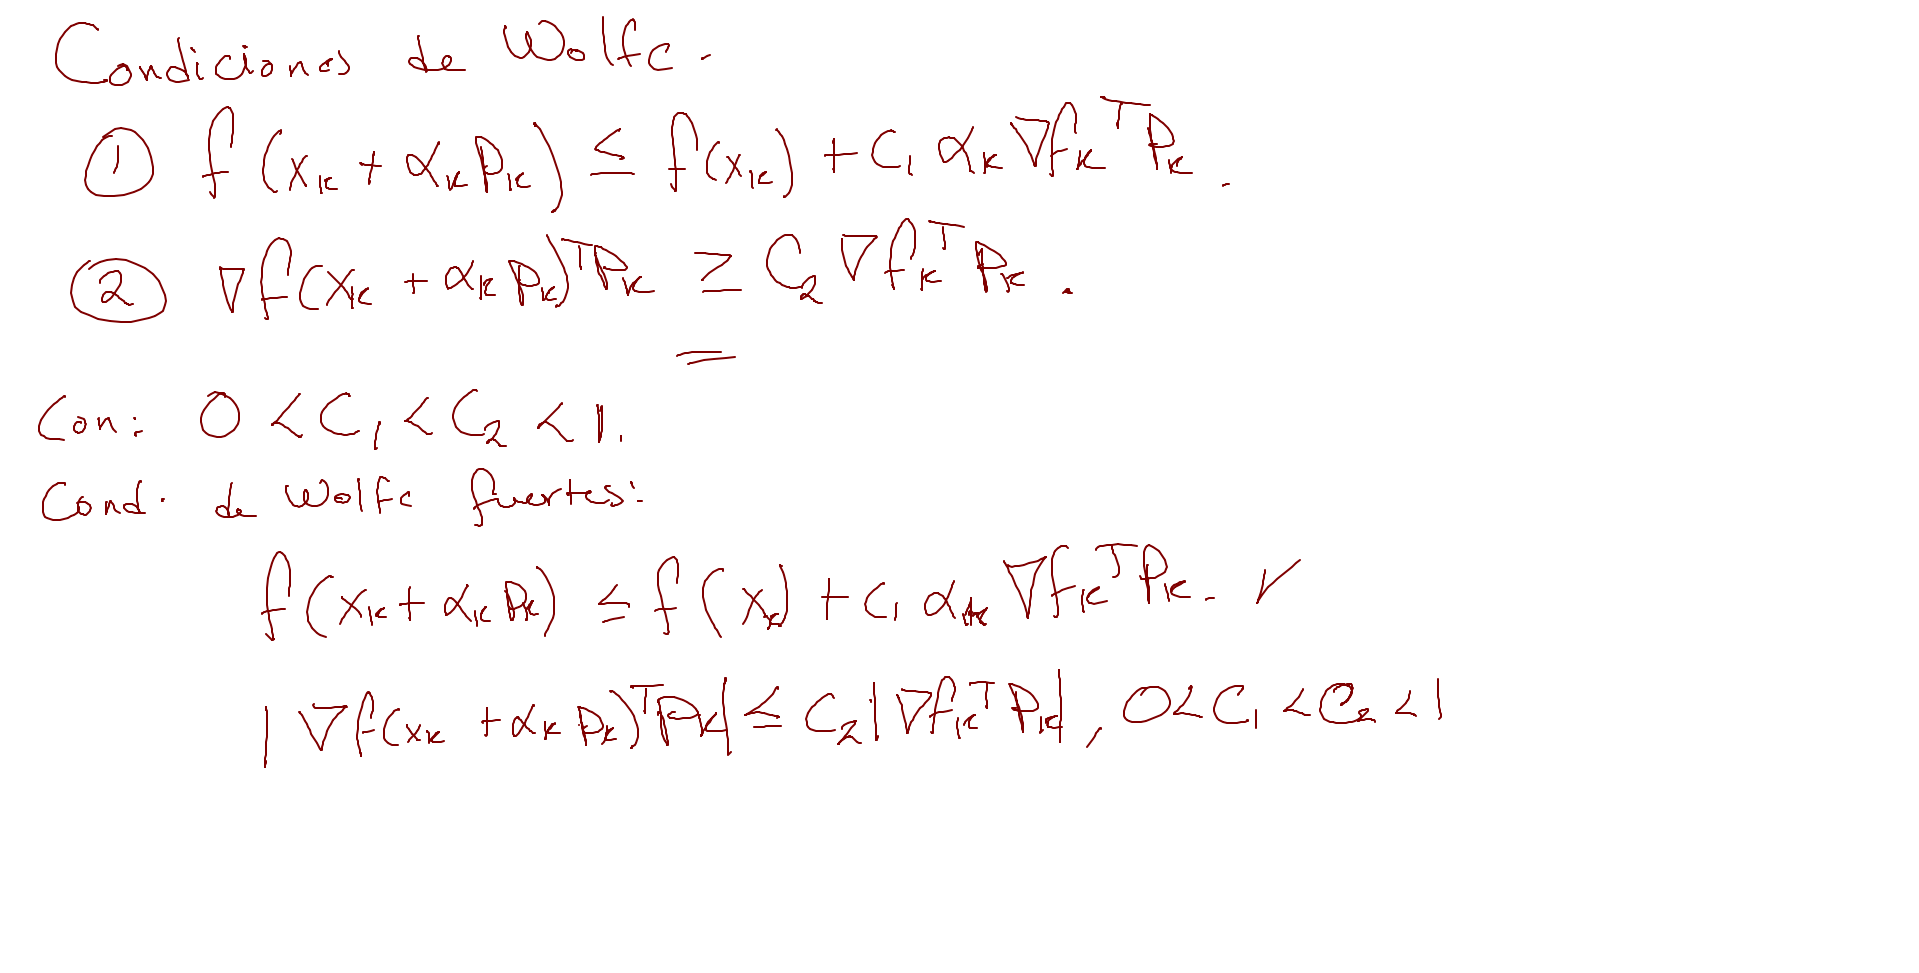 Condiciones de Wolfe.
① f(xₖ + αₖ pₖ) ≤ f(xₖ) + c₁ αₖ ∇fₖᵀ pₖ.
② ∇f(xₖ + αₖ pₖ)ᵀ pₖ ≥ c₂ ∇fₖᵀ pₖ.
Con: 0 < c₁ < c₂ < 1.
Cond. de Wolfe fuertes:
f(xₖ + αₖ pₖ) ≤ f(xₖ) + c₁ αₖ ∇fₖᵀ pₖ. ✓
|∇f(xₖ + αₖ pₖ)ᵀ pₖ| ≤ c₂ |∇fₖᵀ pₖ|, 0 < c₁ < c₂ < 1